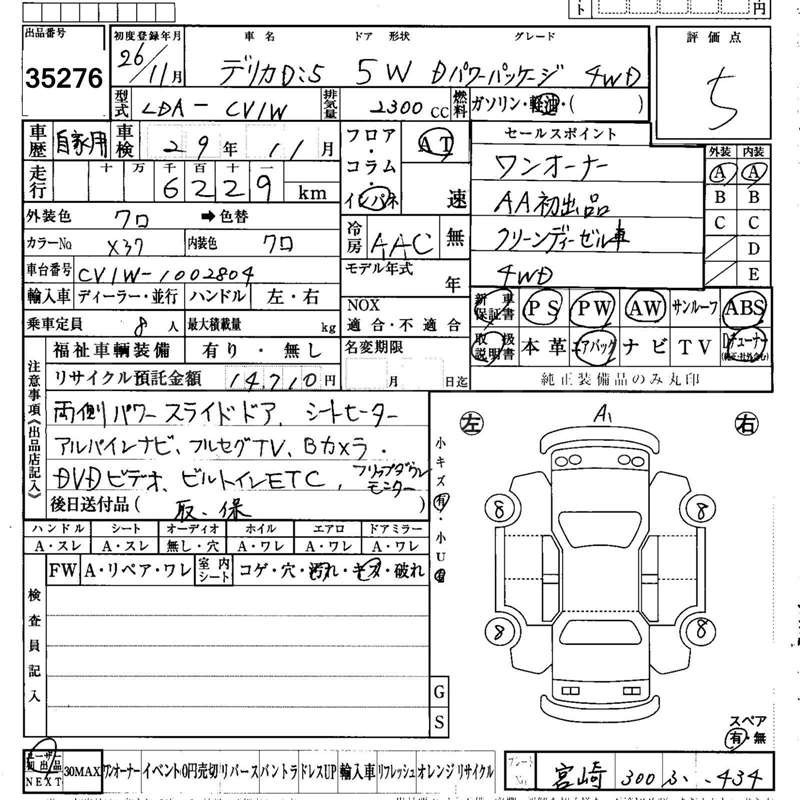 ト 円
出品番号 初度登録年月 車名 ドア 形状 グレード 評価点
35276 26/11月 デリカD:5 5 W Dパワーパッケージ 4WD 5
型式 LDA-CV1W 排気量 2300 CC 燃料 ガソリン・軽油・( )
車歴 自家用 車検 29年 11月 フロア・コラム・インパネ AT 速 セールスポイント 外装 内装
走行 十 万 千 百 十 一 6229 km ワンオーナー A A
外装色 クロ ➡色替 冷房 AAC 無 AA初出品 B B
カラーNo X37 内装色 クロ クリーンディーゼル車 C C
車台番号 CV1W-1002804 モデル年式 年 4WD D
E
輸入車 ディーラー・並行 ハンドル 左・右 NOX 適合・不適合 新車保証書 PS PW AW サンルーフ ABS
乗車定員 8人 最大積載量 kg 取扱説明書 本革 エアバッグ ナビ TV Dチューナー(純正・社外含む)
福祉車輌装備 有り・無し 名変期限 月 日迄 純正装備品のみ丸印
リサイクル預託金額 14,710円
注意事項《出品店記入》
両側パワースライドドア、シートヒーター
アルパインナビ、フルセグTV、Bカメラ・
DVDビデオ、ビルトインETC、フリップダウンモニター
後日送付品( 取、保 )
小キズ有・小U有
左 A1 右
8 8
8 8
ハンドル シート オーディオ ホイル エアロ ドアミラー
A・スレ A・スレ 無し・穴 A・ワレ A・ワレ A・ワレ
FW A・リペア・ワレ 室内シート コゲ・穴・汚れ・キズ・破れ
検査員記入
G
S
スペア
有・無
ユーザー初出品NEXT 30MAX ワンオーナー イベント 0円売切 リバース バントラ ドレスUP 輸入車 リフレッシュ オレンジ リサイクル プレートNo. 宮崎 300 ふ ・434